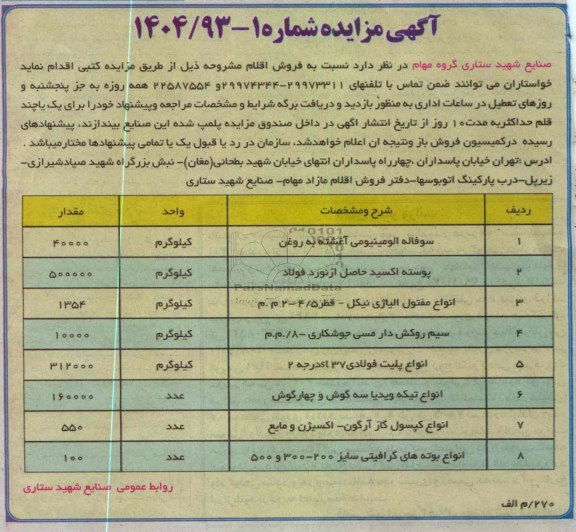 آگهی مزایده شماره ۱-۱۴۰۴/۹۳
صنایع شهید ستاری گروه مهام در نظر دارد نسبت به فروش اقلام مشروحه ذیل از طریق مزایده کتبی اقدام نماید
خواستاران می توانند ضمن تماس با تلفنهای ۲۹۹۷۳۳۱۱-۲۹۹۷۴۳۴۴و ۲۲۵۸۷۵۵۴ همه روزه به جز پنجشنبه و
روزهای تعطیل در ساعات اداری به منظور بازدید و دریافت برگه شرایط و مشخصات مراجعه وپیشنهاد خودرا برای یک یاچند
قلم حداکثربه مدت۱۰ روز از تاریخ انتشار اگهی در داخل صندوق مزایده پلمب شده این صنایع بیندازند، پیشنهادهای
رسیده درکمیسیون فروش باز ونتیجه ان اعلام خواهدشد، سازمان در رد یا قبول یک یا تمامی پیشنهادها مختارمیباشد .
ادرس :تهران خیابان پاسداران .چهارراه پاسداران انتهای خیابان شهید بطحائی(مغان)- نبش بزرگراه شهید صیادشیرازی-
زیرپل-درب پارکینگ اتوبوسها-دفتر فروش اقلام مازاد مهام- صنایع شهید ستاری
ردیف شرح ومشخصات واحد مقدار
۱ سوفاله الومینیومی آغشته به روغن کیلوگرم ۴۰۰۰۰
۲ پوسته اکسید حاصل ازنورد فولاد کیلوگرم ۵۰۰۰۰۰
۳ انواع مفتول الیاژی نیکل - قطر۴/۵-۲ م.م کیلوگرم ۱۳۵۴
۴ سیم روکش دار مسی جوشکاری -۰/۸م.م کیلوگرم ۱۰۰۰۰
۵ انواع پلیت فولادی۳۷ stدرجه ۲ کیلوگرم ۳۱۲۰۰۰
۶ انواع تیکه ویدیا سه گوش و چهارگوش عدد ۱۶۰۰۰۰
۷ انواع کپسول گاز آرگون- اکسیژن و مایع عدد ۵۵۰
۸ انواع بوته های گرافیتی سایز ۲۰۰-۳۰۰ و ۵۰۰ عدد ۱۰۰
روابط عمومی صنایع شهید ستاری
۲۷۰/م الف
ParsNamadData